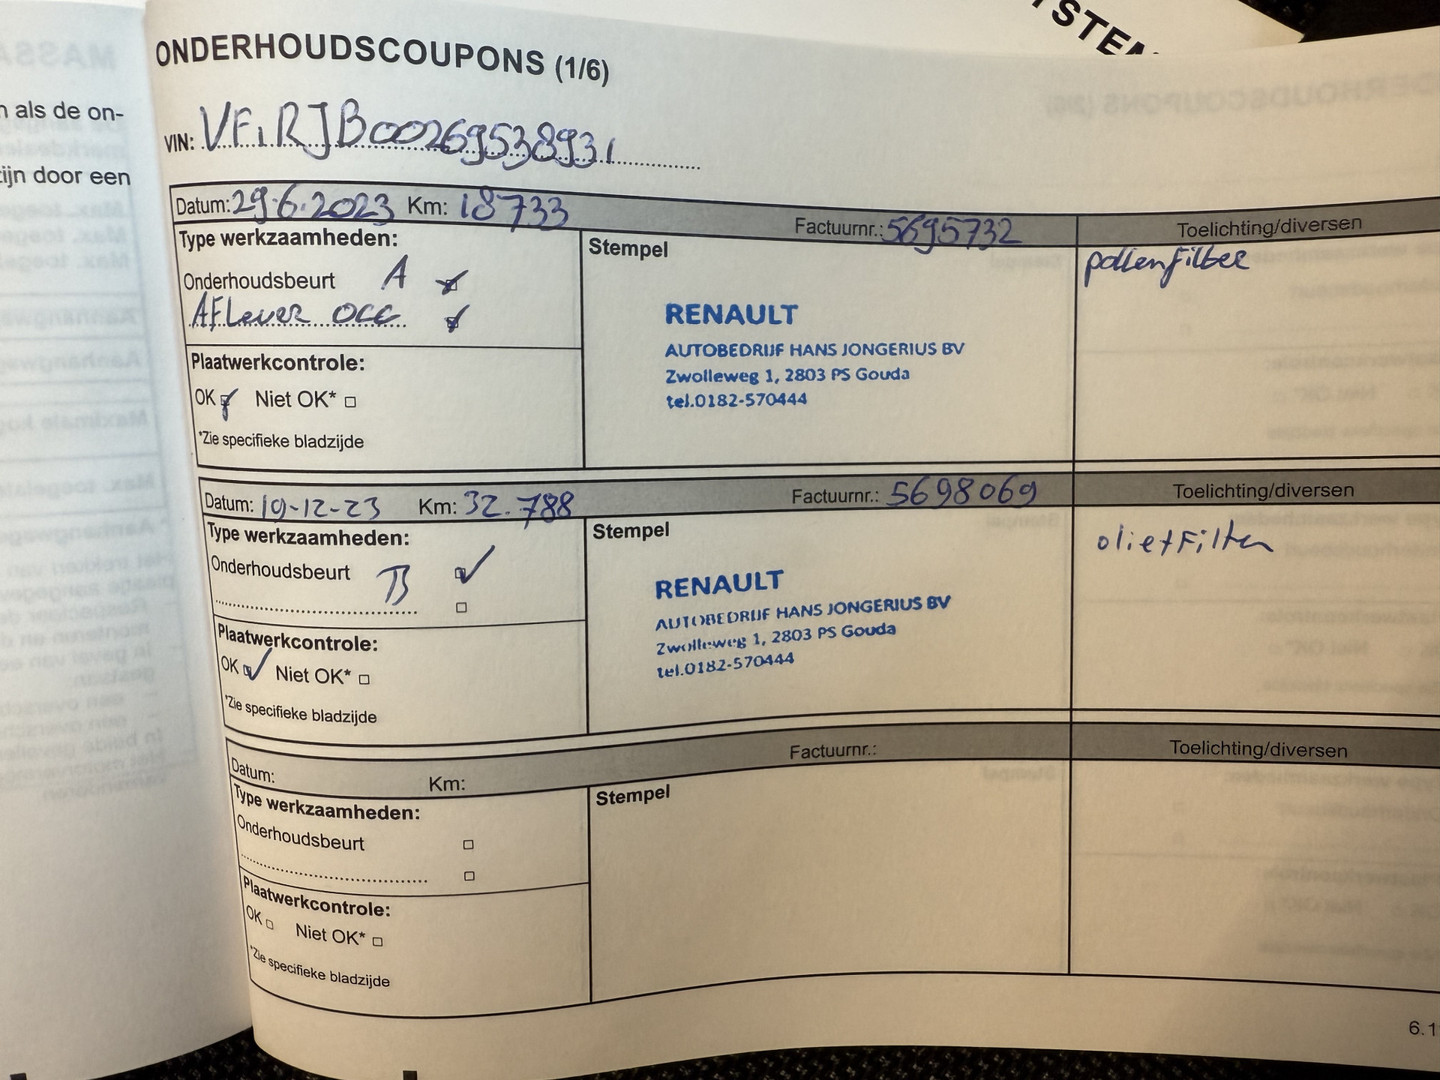 YSTEM
n als de on-
ijn door een
ONDERHOUDSCOUPONS (1/6)
VIN: VF1RJB00269538931
Datum: 29.6.2023 Km: 18733 Factuurnr.: 5695732 Toelichting/diversen
Type werkzaamheden:
Stempel
pollenfilter
Onderhoudsbeurt A
AFLever OCC
RENAULT
AUTOBEDRIJF HANS JONGERIUS BV
Zwolleweg 1, 2803 PS Gouda
tel.0182-570444
Plaatwerkcontrole:
OK Niet OK*
*Zie specifieke bladzijde
Datum: 19-12-23 Km: 32.788 Factuurnr.: 5698069 Toelichting/diversen
Type werkzaamheden:
Stempel
olie+Filter
Onderhoudsbeurt B
RENAULT
AUTOBEDRIJF HANS JONGERIUS BV
Zwolleweg 1, 2803 PS Gouda
tel.0182-570444
Plaatwerkcontrole:
OK Niet OK*
*Zie specifieke bladzijde
Datum: Km: Factuurnr.: Toelichting/diversen
Type werkzaamheden:
Stempel
Onderhoudsbeurt
Plaatwerkcontrole:
OK Niet OK*
*Zie specifieke bladzijde
6.1